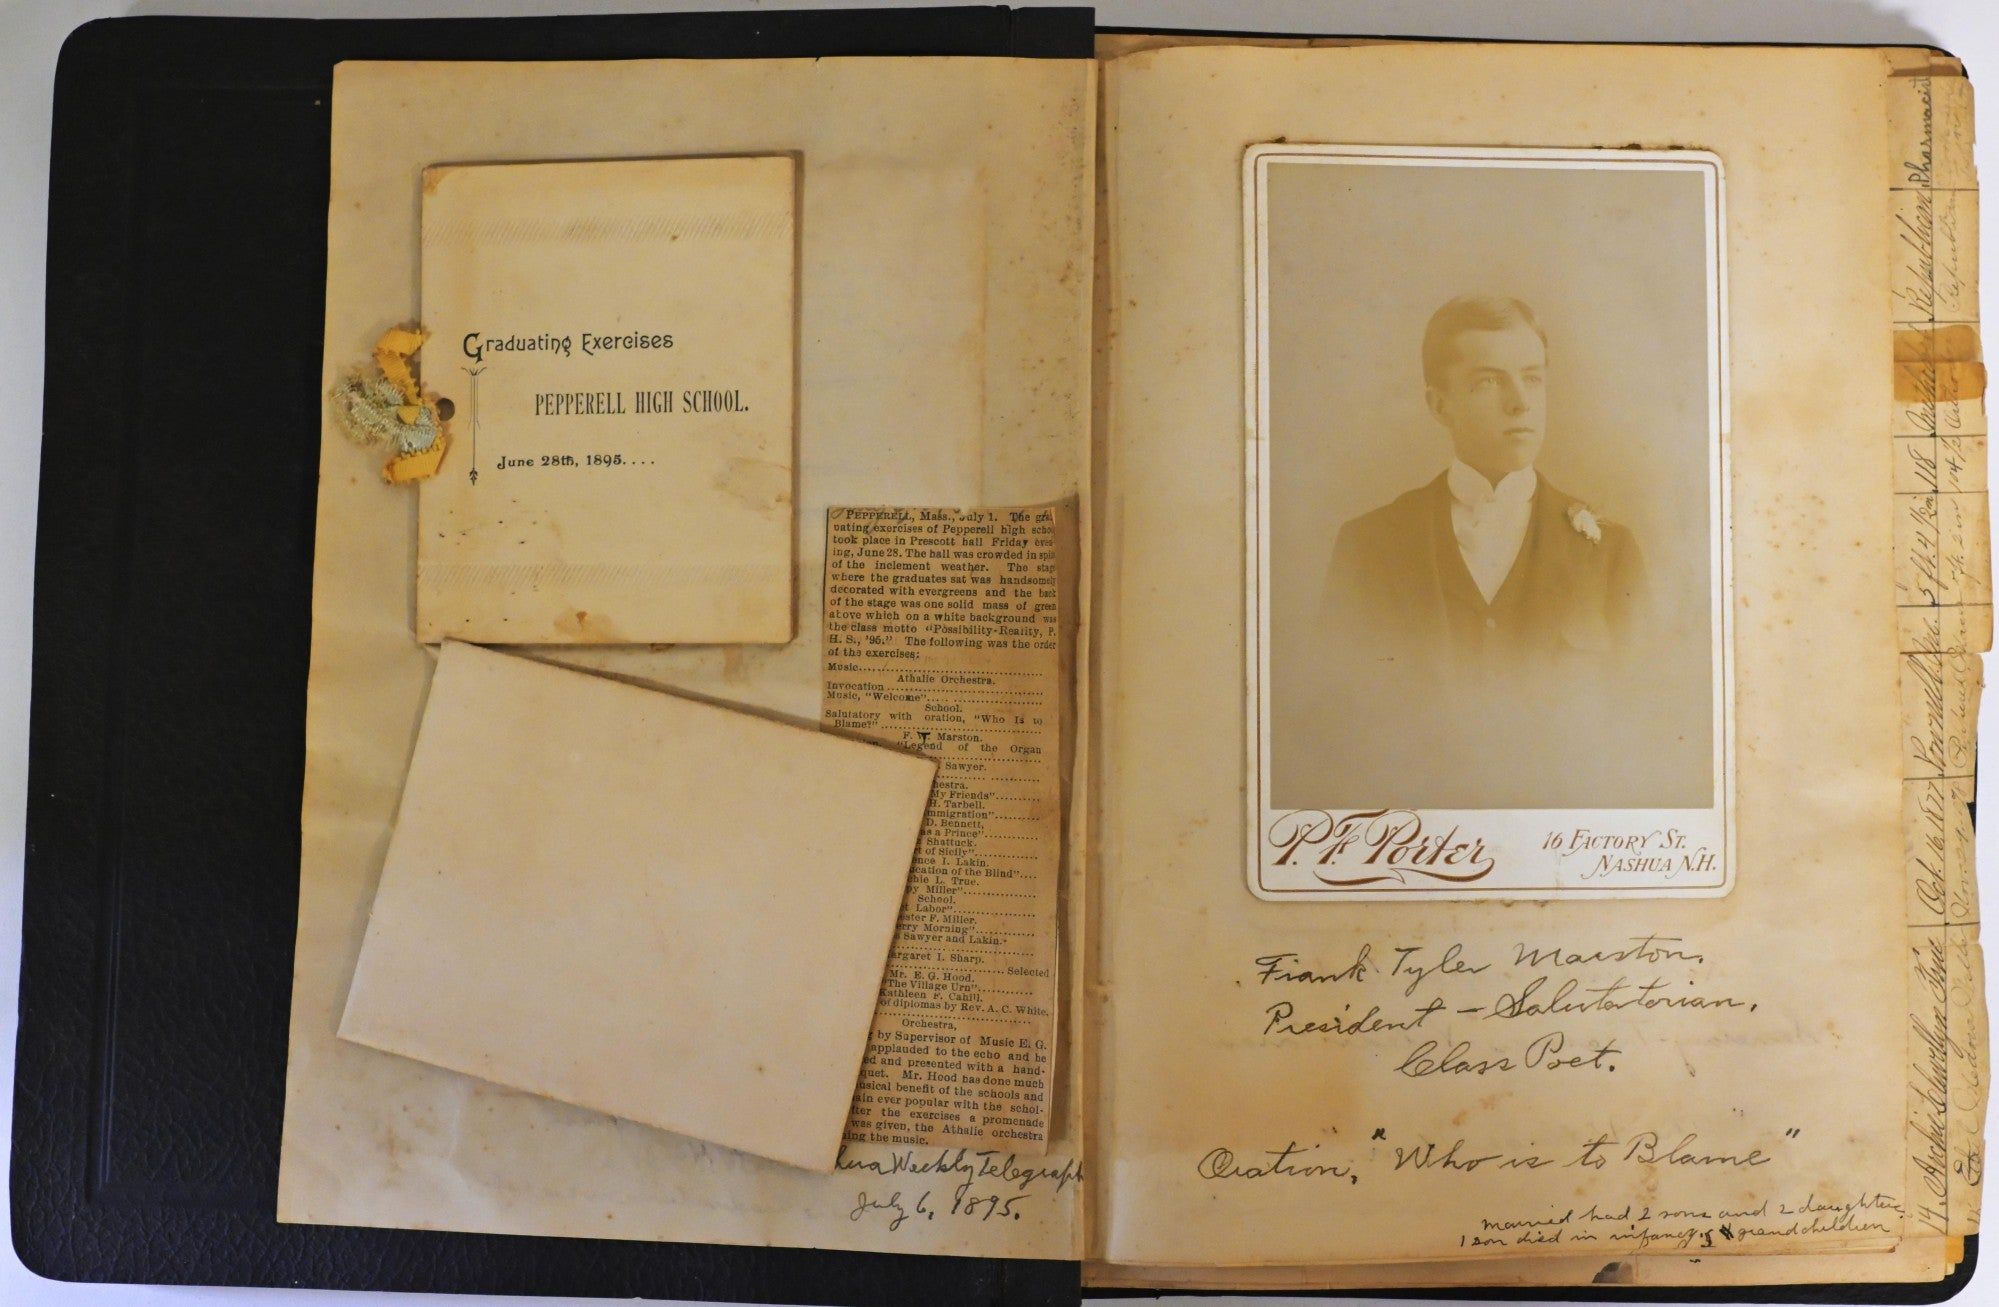 Graduating Exercises
PEPPERELL HIGH SCHOOL.
June 28th, 1895....
PEPPERELL, Mass., July 1. The gra
uating exercises of Pepperell high scho
took place in Prescott hall Friday eve
ing, June 28. The hall was crowded in spi
of the inclement weather. The stag
where the graduates sat was handsomely
decorated with evergreens and the back
of the stage was one solid mass of green
above which on a white background was
the class motto "Possibility-Reality, P.
H. S., '95." The following was the order
of the exercises:
Music....
Athalie Orchestra.
Invocation
Music, "Welcome"
School.
Salutatory with oration, "Who Is to
Blame?"
F. W. Marston.
"Legend of the Organ
Sawyer.
hestra.
My Friends"
H. Tarbell.
mmigration"
D. Bennett,
as a Prince"
Shattuck.
rt of Sicily"
ence I. Lakin.
ucation of the Blind"
chie L. True.
py Miller"
School.
et Labor"
ester F. Miller.
erry Morning"
s Sawyer and Lakin.
argaret I. Sharp.
Selected
Mr. E. G. Hood.
"The Village Urn"
Kathleen F. Cahill.
of diplomas by Rev. A. C. White.
Orchestra,
g by Supervisor of Music E. G.
applauded to the echo and he
ed and presented with a hand-
quet. Mr. Hood has done much
usical benefit of the schools and
ain ever popular with the schol-
fter the exercises a promenade
was given, the Athalie orchestra
hing the music.
hua Weekly Telegraph
July 6, 1895.
P. F. Porter
16 FACTORY ST.
NASHUA N.H.
Frank Tyler Marston.
President – Salutatorian.
Class Poet.
Oration, "Who is to Blame"
married had 2 sons and 2 daughters
1 son died in infancy. 5 grandchildren
14. Archie Lewellyn True Oct. 16, 1877 5 ft. 4 1/2 in 118 Republican Pharmacist